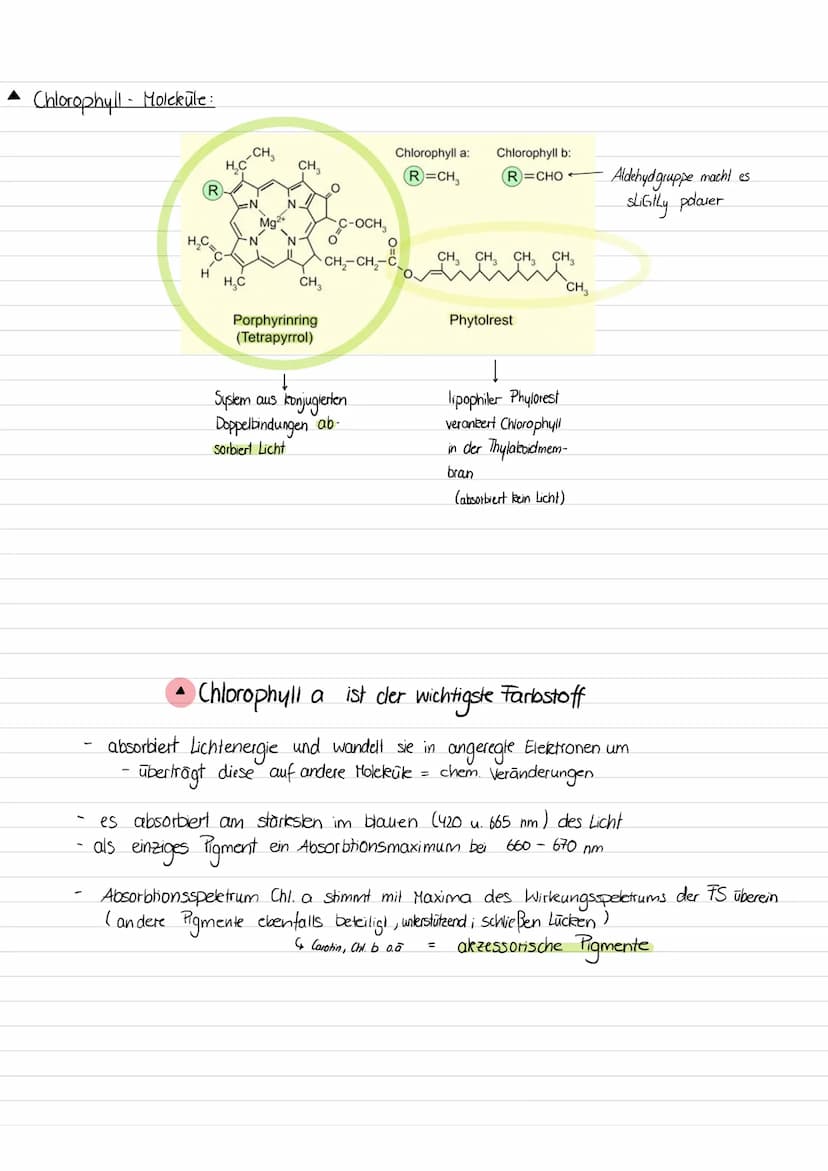 ▲ Chlorophyll - Moleküle:
CH₃
H₂C
CH₃
R
O
N
N
Mg²⁺
C-OCH₃
O
H₂C
N
N
O
C
CH₂-CH₂-C
CH₃ CH₃ CH₃ CH₃
H
O
H₃C
CH₃
CH₃
Chlorophyll a:
R=CH₃
Chlorophyll b:
R=CHO
Aldehydgruppe macht es
sliGtly polarer
Porphyrinring
(Tetrapyrrol)
Phytolrest
System aus konjugierten
Doppelbindungen ab-
sorbiert Licht
lipophiler Phylorest
verankert Chlorophyll
in der Thylakoidmem-
bran
(absorbiert kein Licht)
▲ Chlorophyll a ist der wichtigste Farbstoff
- absorbiert Lichtenergie und wandelt sie in angeregte Elektronen um
- überträgt diese auf andere Moleküle = chem. Veränderungen
- es absorbiert am stärksten im blauen (420 u. 665 nm) des Licht
- als einziges Pigment ein Absorbtionsmaximum bei 660 - 670 nm
- Absorbtionsspektrum Chl. a stimmt mit Maxima des Wirkungsspektrums der FS überein
(andere Pigmente ebenfalls beteiligt, unterstützend; schließen Lücken)
↳ Carotin, Chl. b o.ä = akzessorische Pigmente